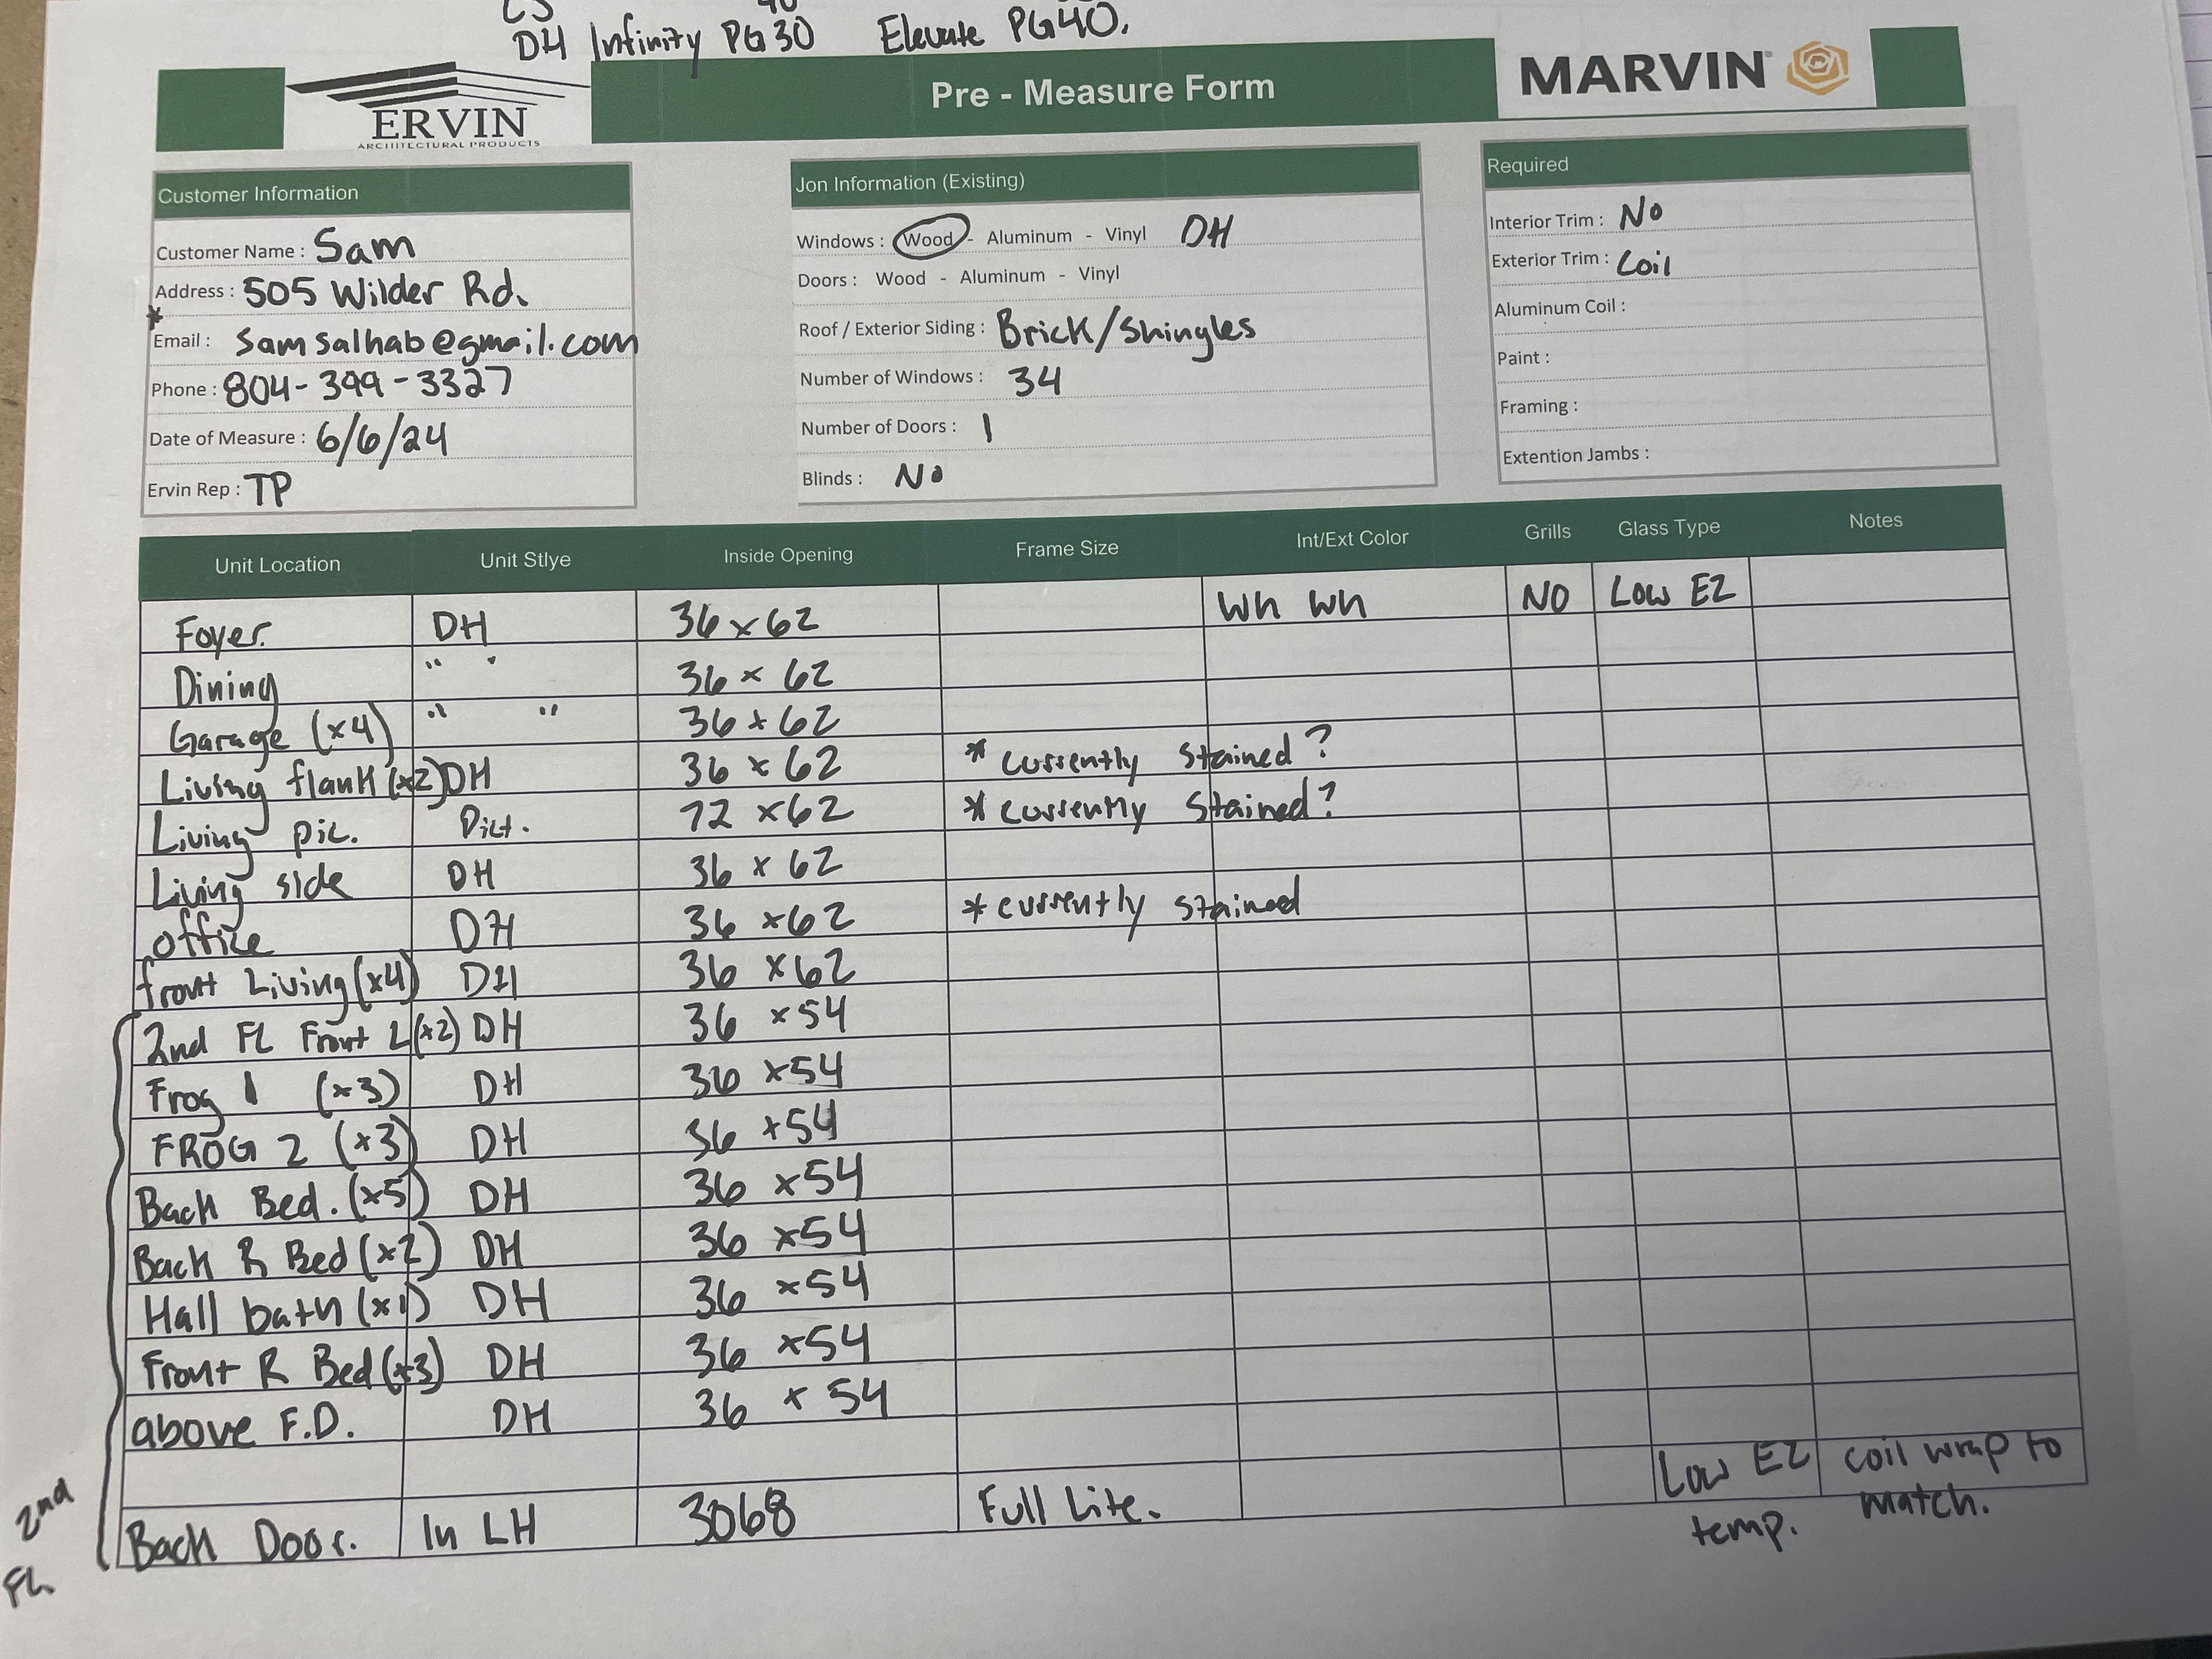 DH Infinity PG30 Elevate PG40.
ERVIN
ARCHITECTURAL PRODUCTS
Pre - Measure Form
MARVIN®
Customer Information
Customer Name : Sam
Address : 505 Wilder Rd.
*
Email : Samsalhab@gmail.com
Phone : 804-399-3327
Date of Measure : 6/6/24
Ervin Rep : TP
Jon Information (Existing)
Windows : Wood - Aluminum - Vinyl DH
Doors : Wood - Aluminum - Vinyl
Roof / Exterior Siding : Brick/Shingles
Number of Windows : 34
Number of Doors : 1
Blinds : No
Required
Interior Trim : No
Exterior Trim : Coil
Aluminum Coil :
Paint :
Framing :
Extention Jambs :
Unit Location Unit Stlye Inside Opening Frame Size Int/Ext Color Grills Glass Type Notes
Foyer. DH 36 x 62 Wh Wh NO Low E2
Dining " " 36 x 62
Garage (x4) " " 36 x 62
Living flank (x2) DH 36 x 62 * currently stained ?
Living pic. Pict. 72 x 62 * currently stained ?
Living side DH 36 x 62
office DH 36 x 62 * currently stained
front Living (x4) DH 36 x 62
2nd FL Front L (x2) DH 36 x 54
Frog 1 (x3) DH 36 x 54
FROG 2 (x3) DH 36 x 54
Back Bed. (x5) DH 36 x 54
Back R Bed (x2) DH 36 x 54
Hall bath (x1) DH 36 x 54
Front R Bed (x3) DH 36 x 54
above F.D. DH 36 x 54
Back Door. In LH 3068 Full Lite. Low E2 temp. coil wrap to match.
2nd
FL